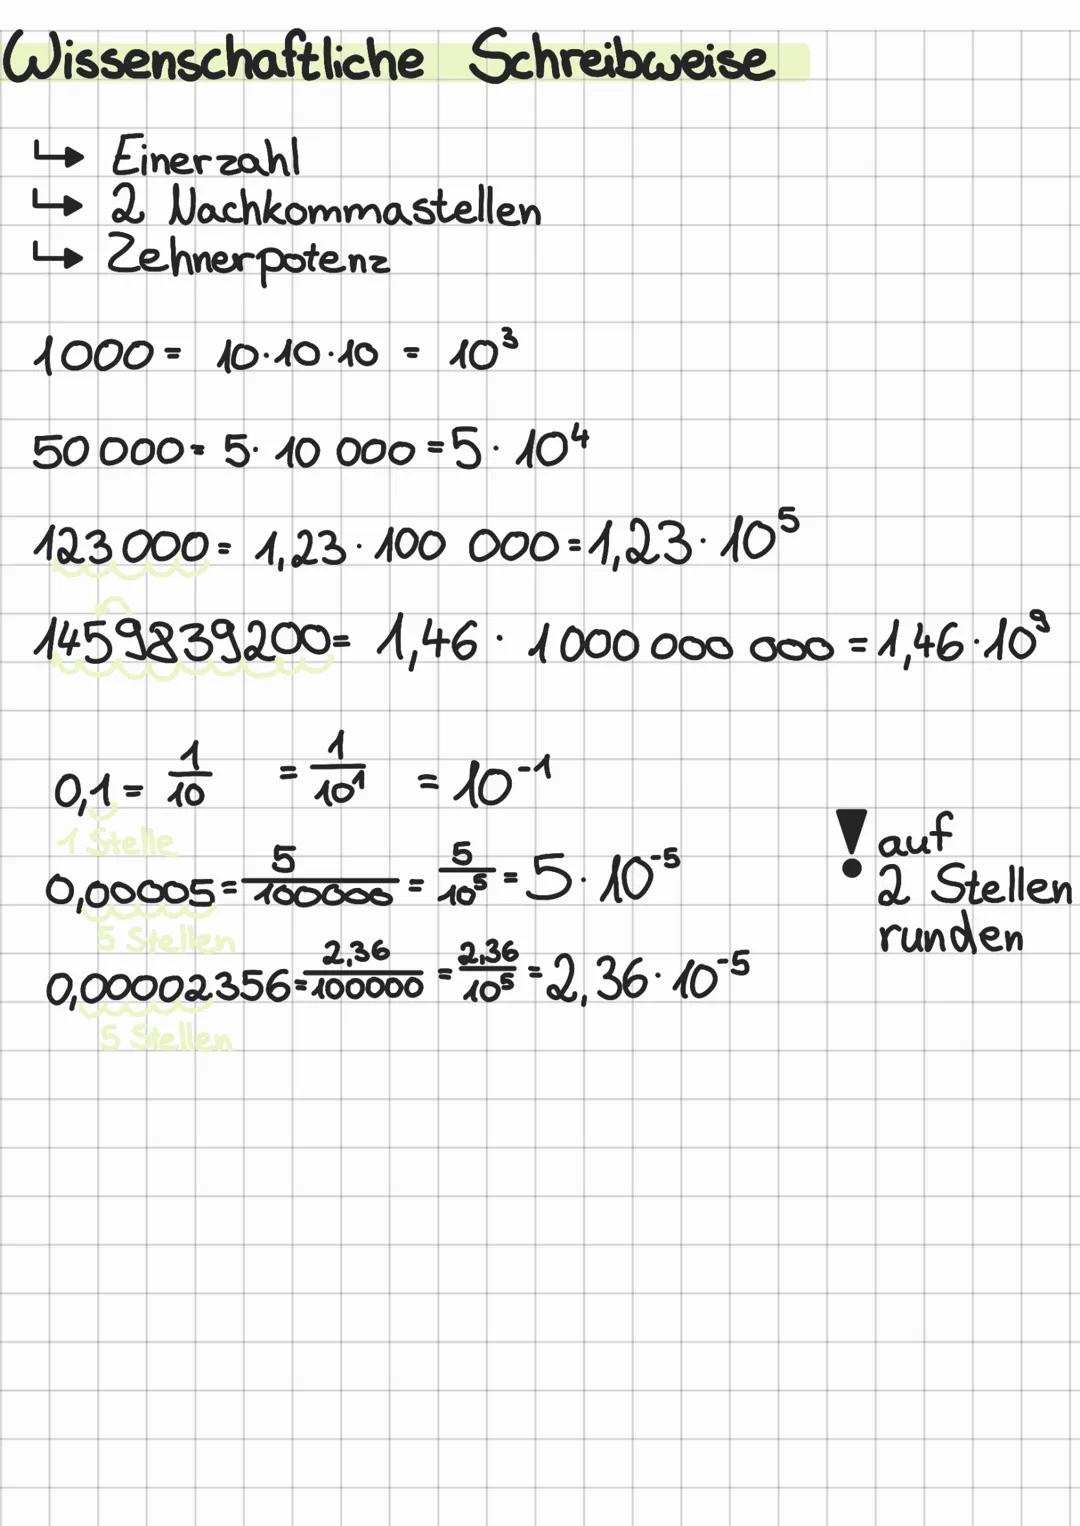 Wissenschaftliche Schreibweise
↳ Einerzahl
↳ 2 Nachkommastellen
↳ Zehnerpotenz
1000 = 10·10·10 = 10³
50 000 = 5· 10 000 = 5 · 10⁴
123 000 = 1,23 · 100 000 = 1,23 · 10⁵
1459839200 = 1,46 · 1000 000 000 = 1,46 · 10⁹
0,1 = 1/10 = 1/10¹ = 10⁻¹
1 Stelle
0,00005 = 5/100000 = 5/10⁵ = 5 · 10⁻⁵
5 Stellen
0,00002356 = 2,36/100000 = 2,36/10⁵ = 2,36 · 10⁻⁵
5 Stellen
! auf
2 Stellen
runden